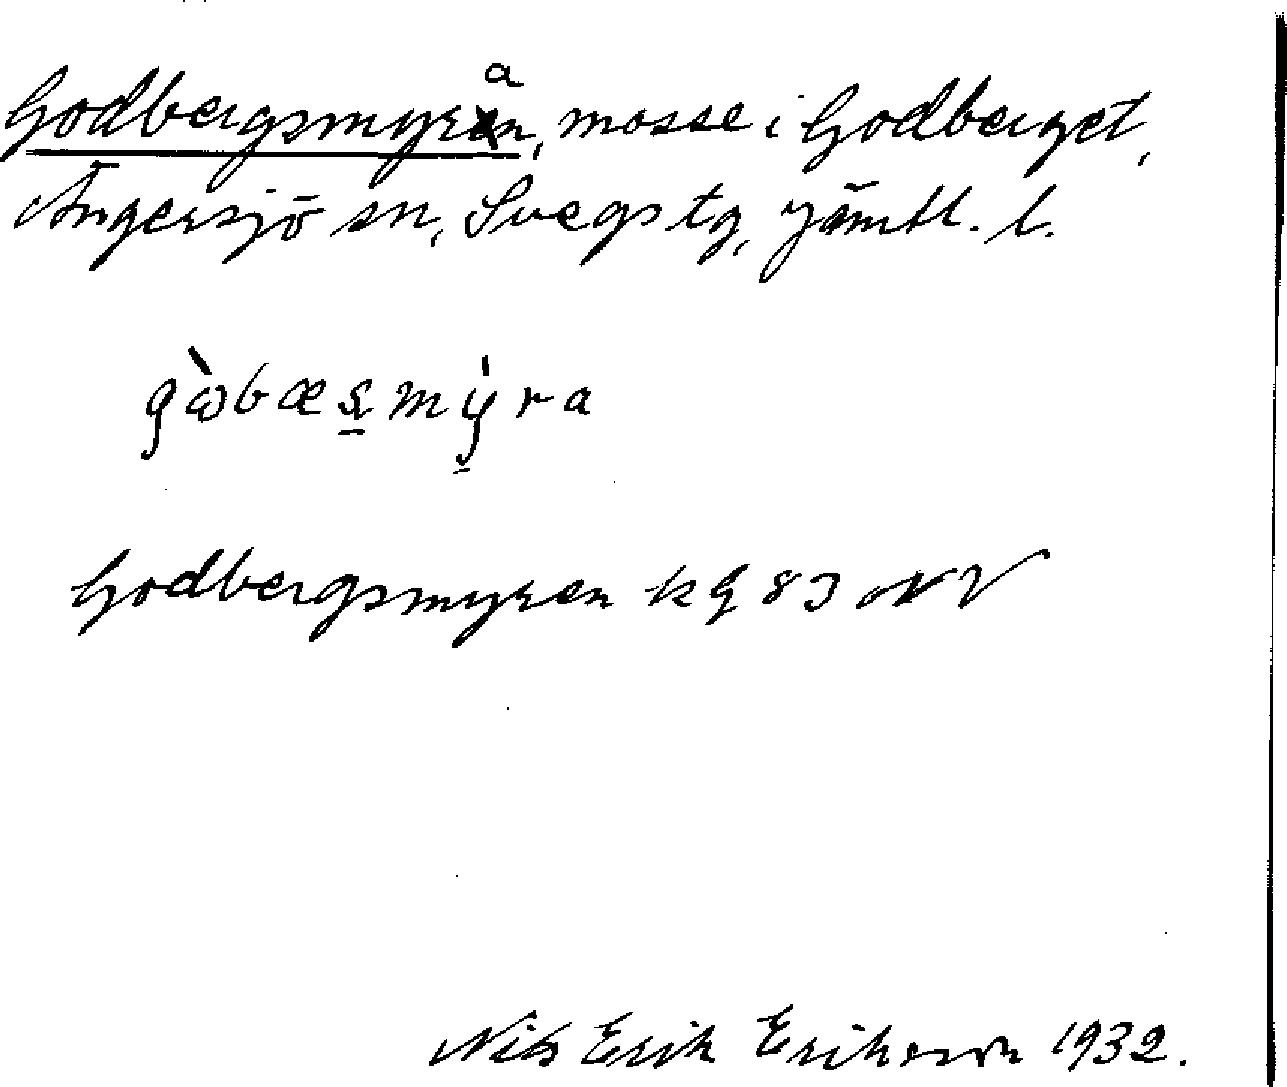 Godbergsmyran, mosse i Godberget,
Ängersjö sn, Svegs tg, Jämtl. l.
gὼbæs̱mý̱ra
Godbergsmyren kg 83 NV
Nils Erik Erikson 1932.